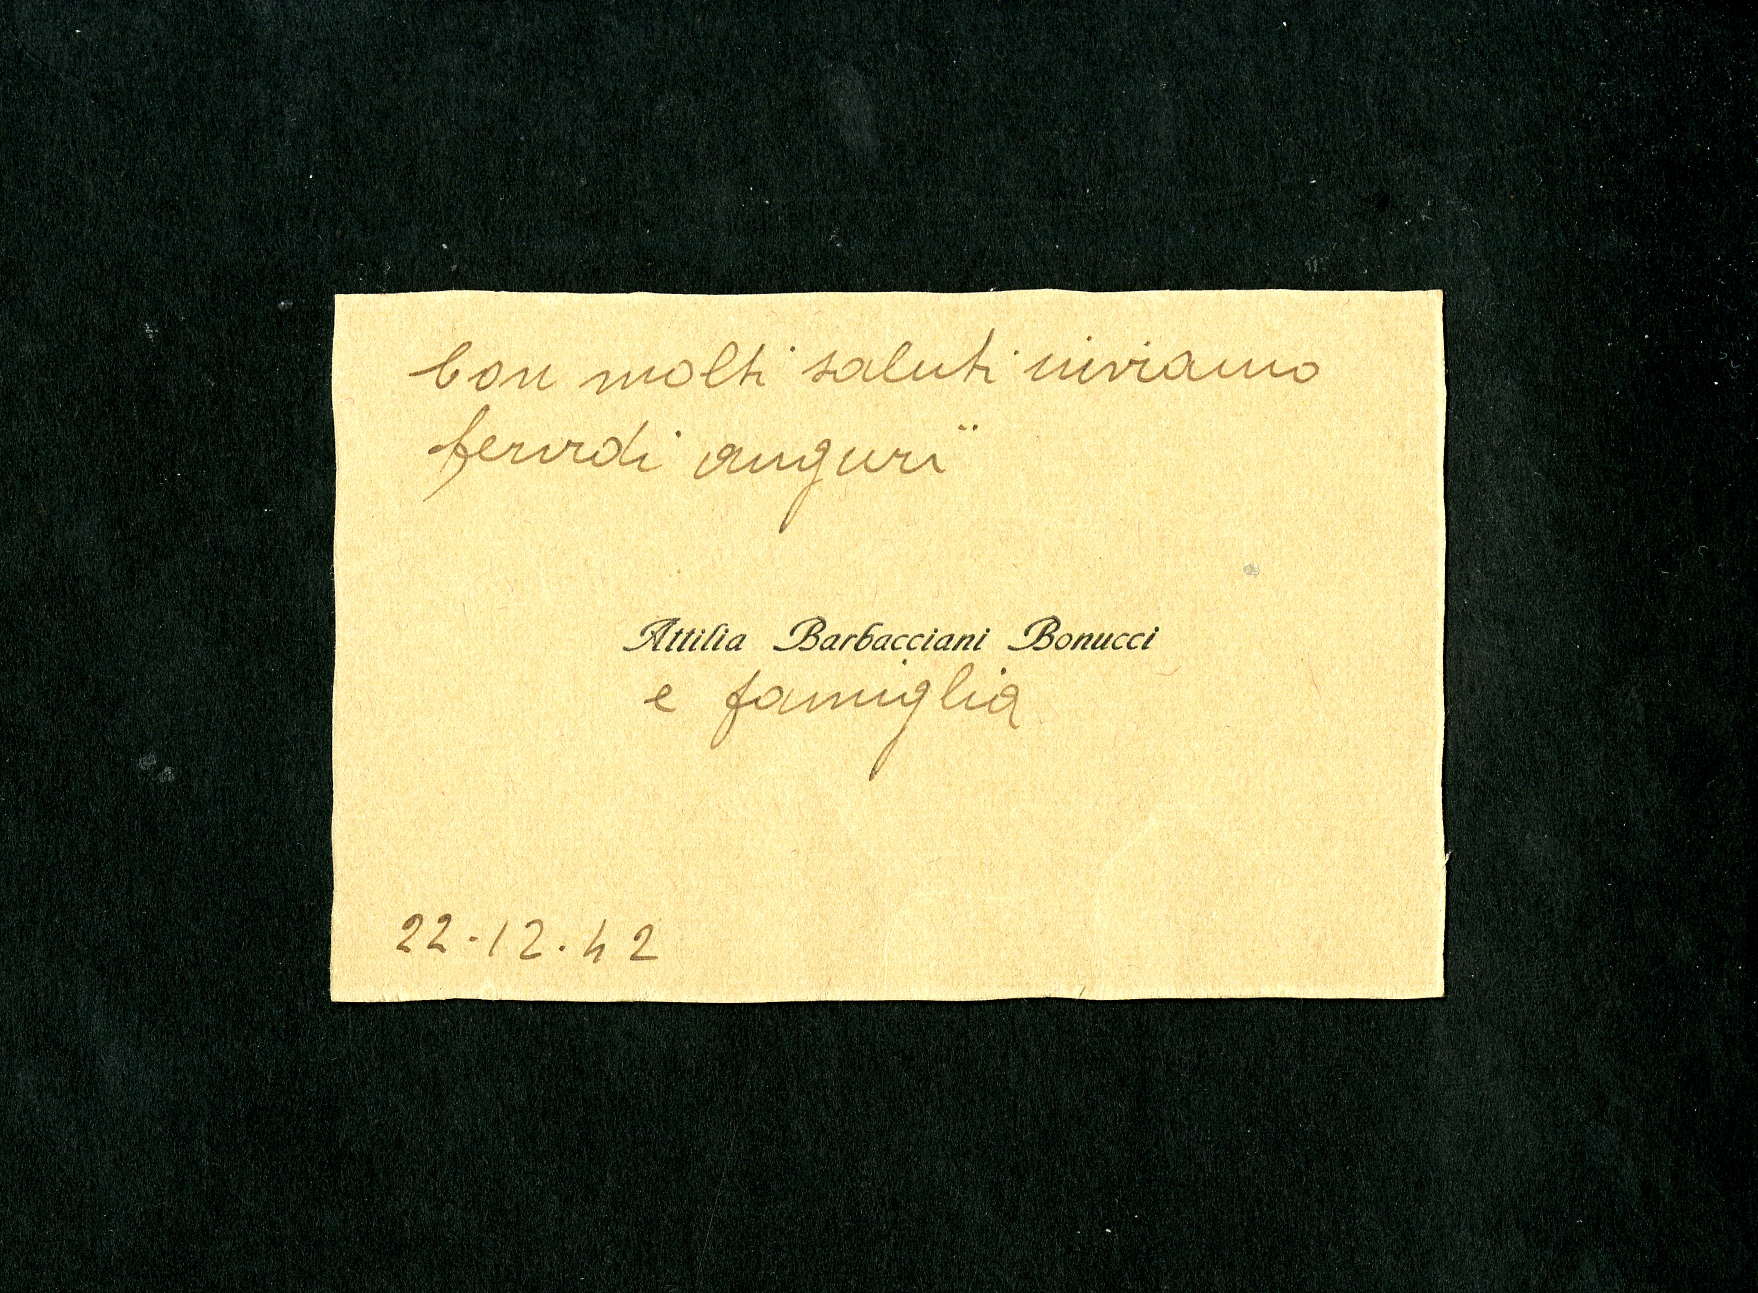 Con molti saluti inviamo
fervidi auguri
Attilia Barbacciani Bonucci
e famiglia
22-12.42